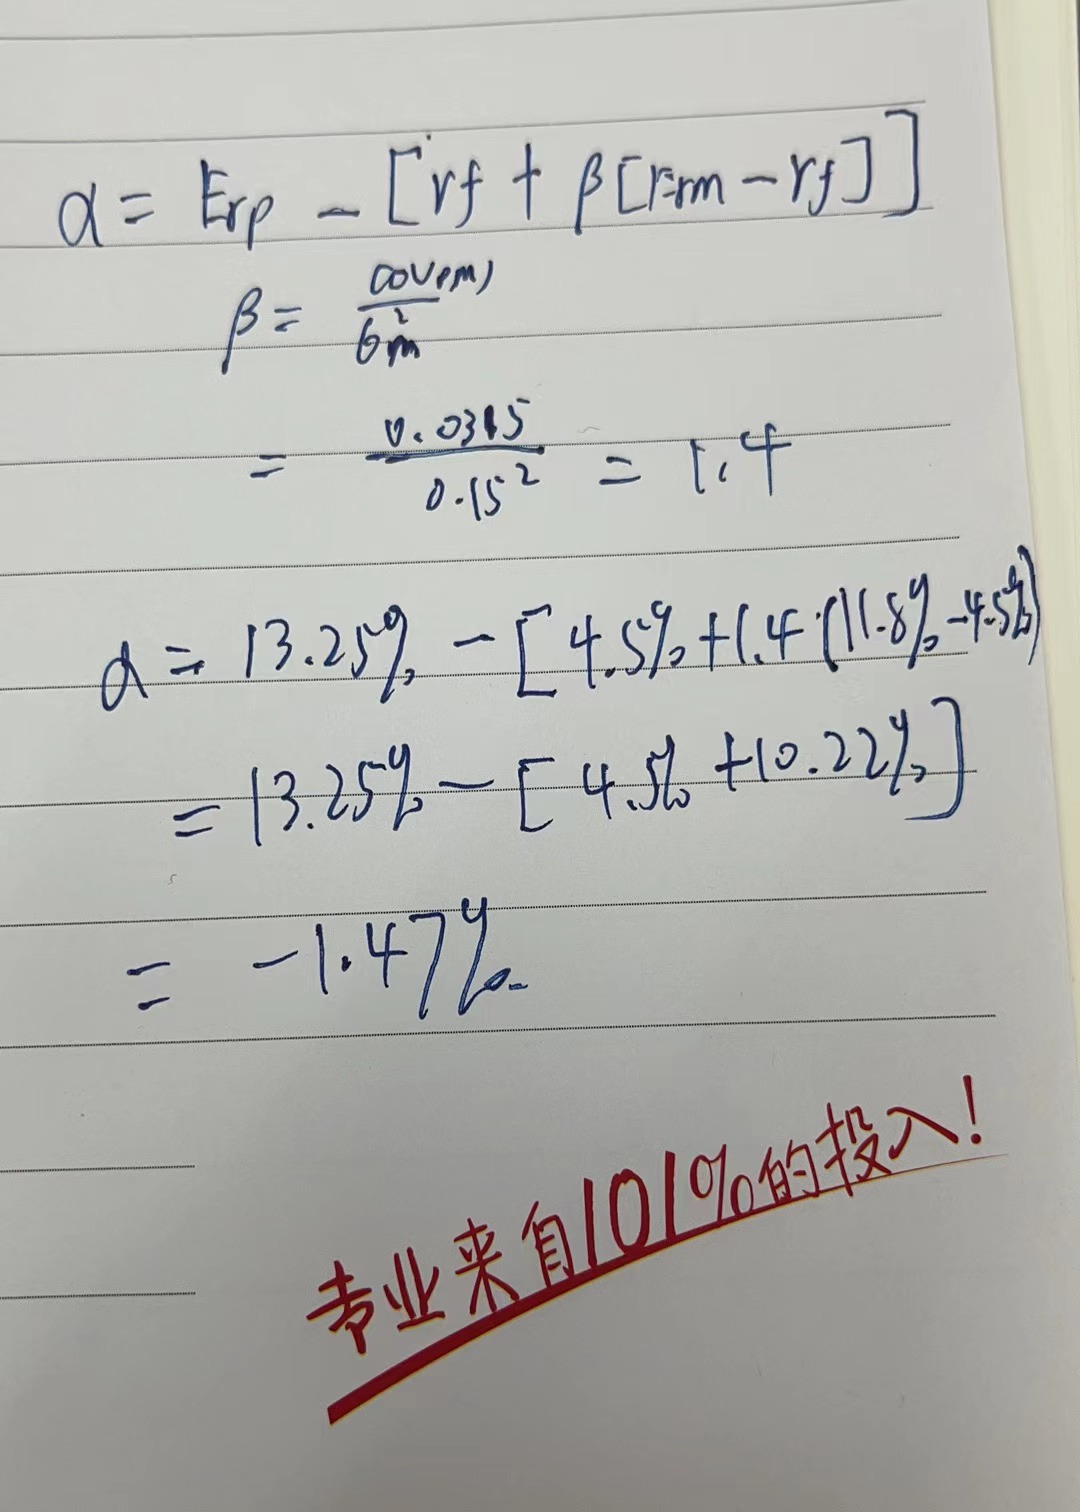 α = Erp - [rf + β[Erm - rf]]
β = cov(pm) / σ²m
= 0.0315 / 0.15² = 1.4
α = 13.25% - [4.5% + 1.4·(11.8% - 4.5%)
= 13.25% - [4.5% + 10.22%]
= -1.47%.
专业来自101%的投入!